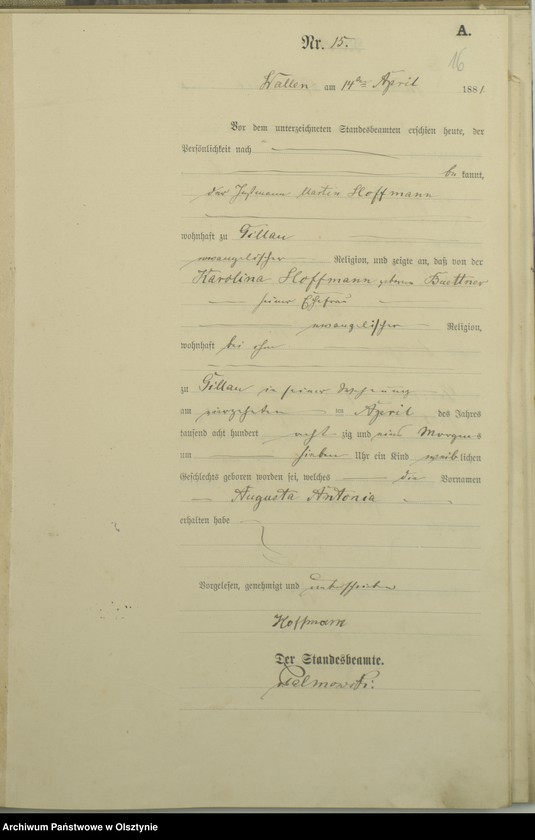 A.
Nr. 15.
16
Wallen am 14ten April 1881
Vor dem unterzeichneten Standesbeamten erschien heute, der
Persönlichkeit nach
be kannt,
der Instmann Martin Hoffmann
wohnhaft zu Gillau
evangelischer Religion, und zeigte an, daß von der
Karolina Hoffmann geborne Buettner
seiner Ehefrau
evangelischer Religion,
wohnhaft bei ihm
zu Gillau in seiner Wohnung
am vierzehnten im April des Jahres
tausend acht hundert acht zig und eins Morgens
um sieben Uhr ein Kind weiblichen
Geschlechts geboren worden sei, welches die Vornamen
Augusta Antonia
erhalten habe
Vorgelesen, genehmigt und unterschrieben
Hoffmann
Der Standesbeamte.
Archiwum Państwowe w Olsztynie